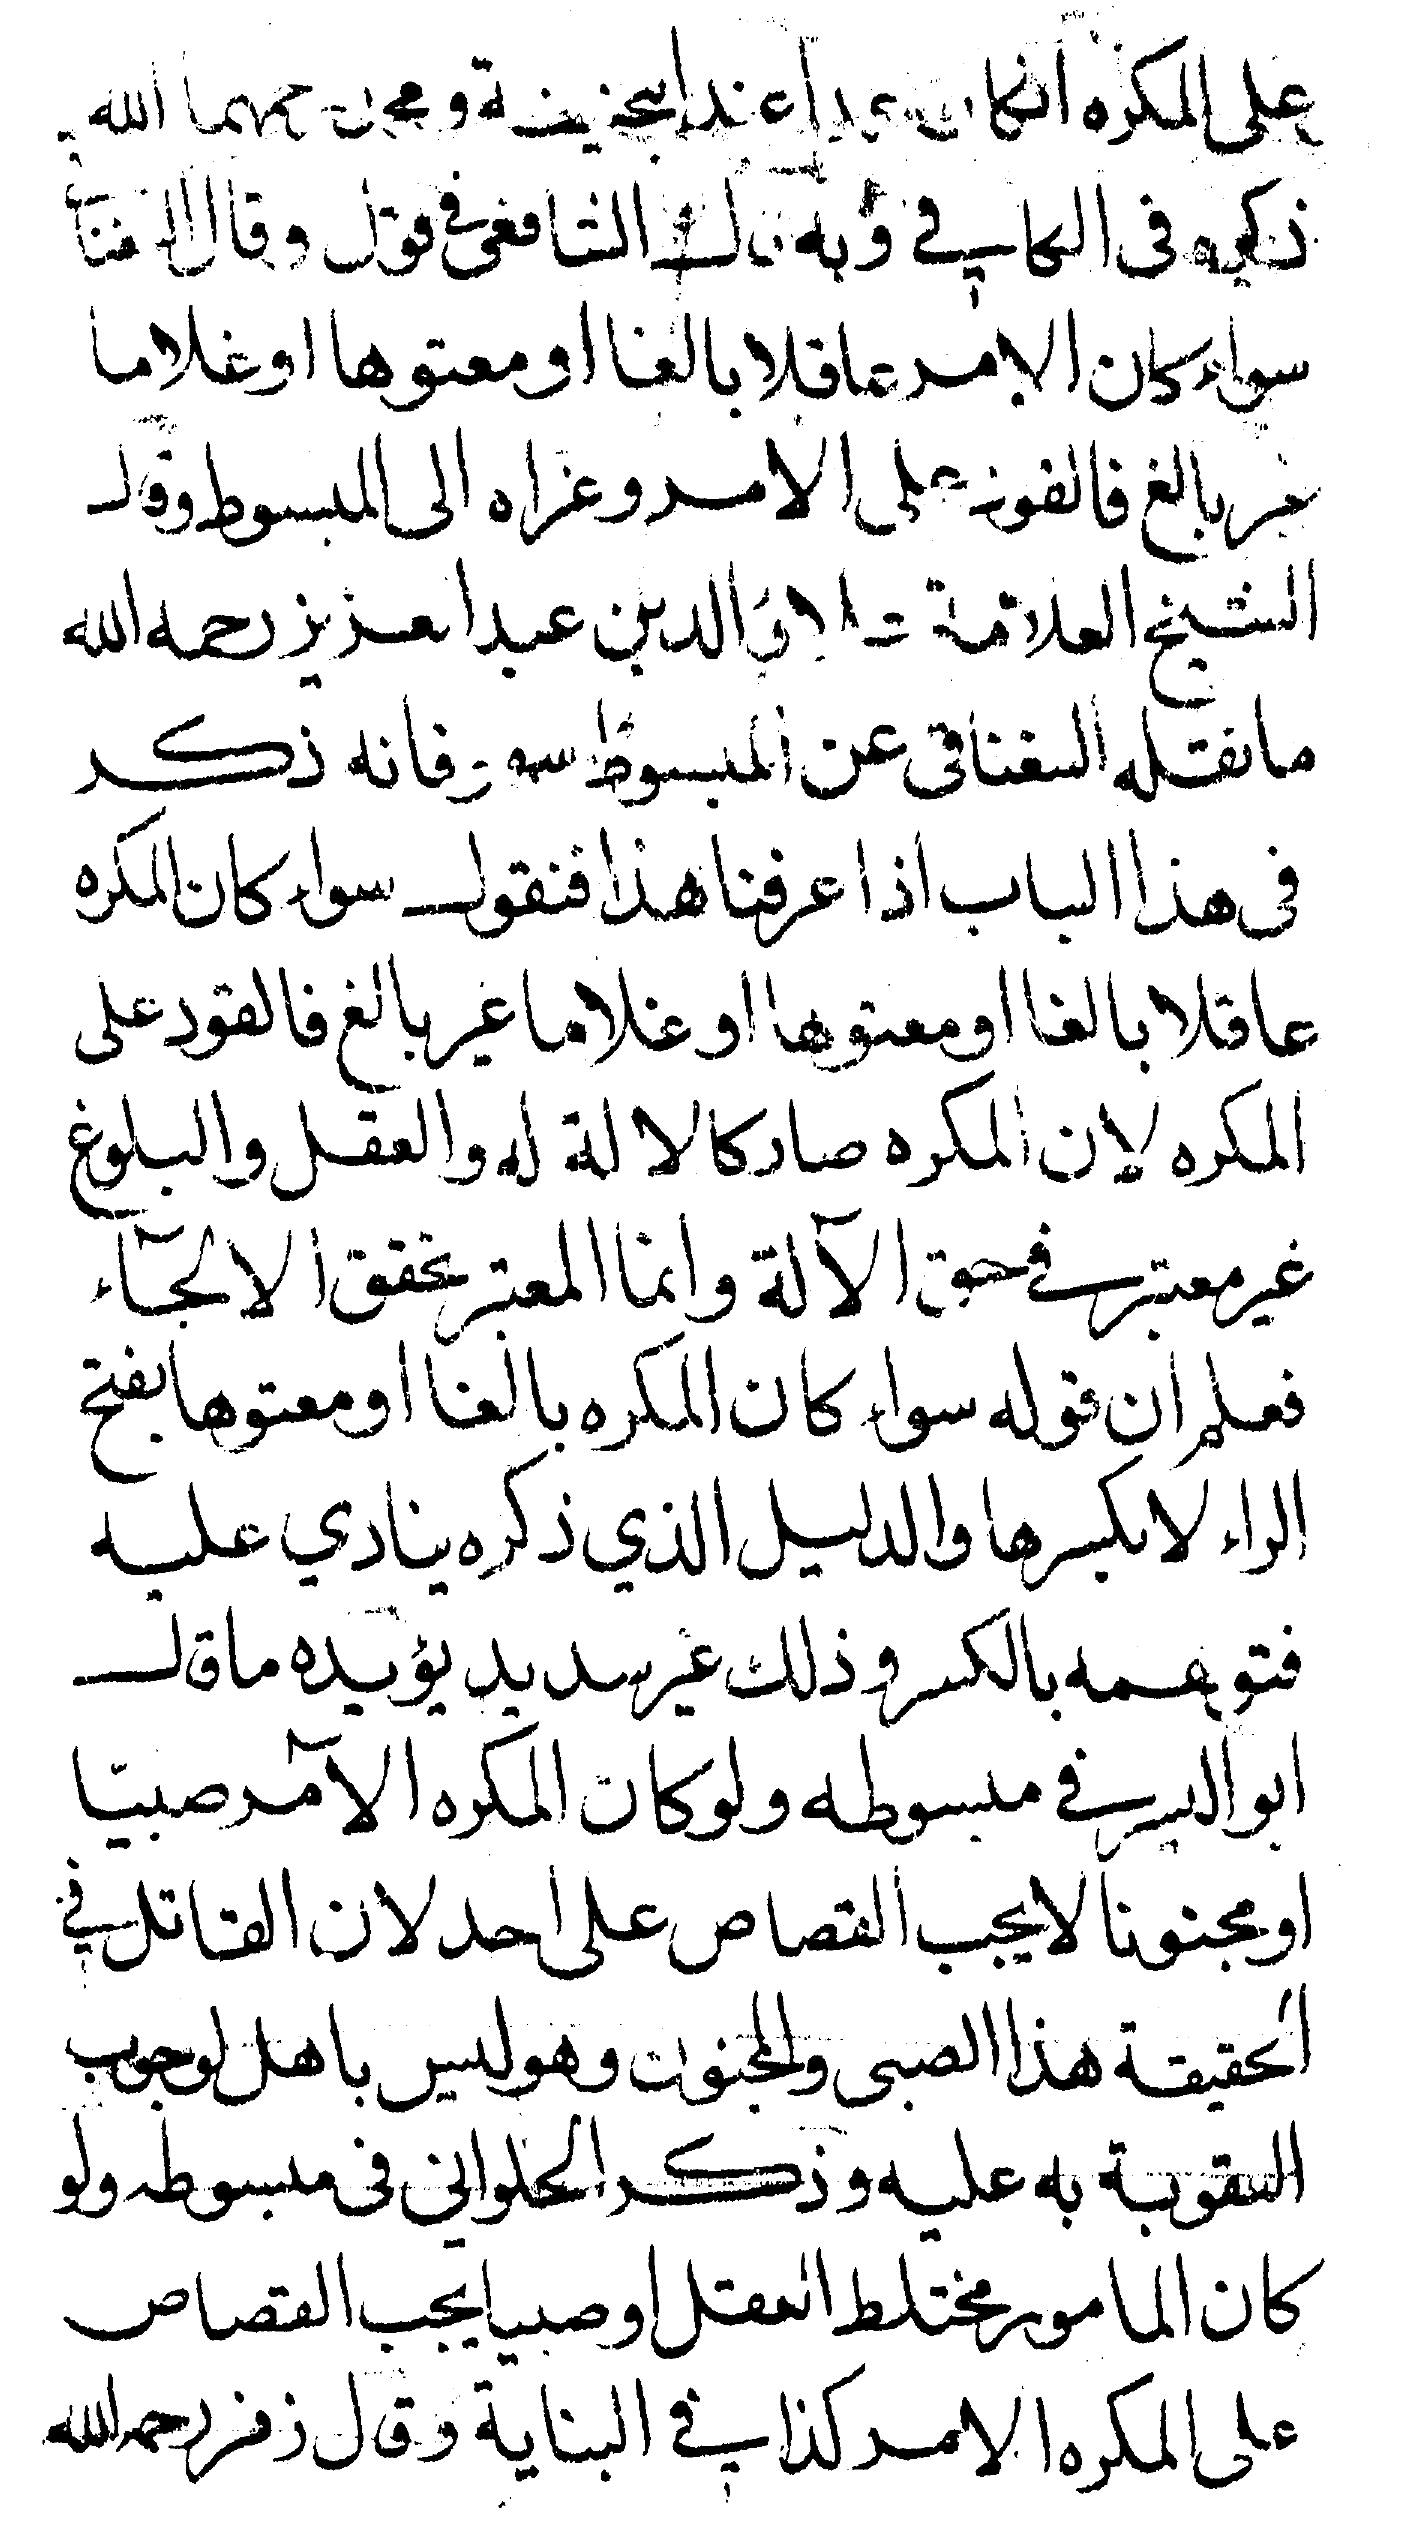 على المكره ان كان عمدا عند ابيحنيفة ومحمد رحمهما الله
ذكره في الكافي وبه قال الشافعي في قول وقال السغنا
سواء كان الامر عاقلا بالغا او معتوها او غلاما
غير بالغ فالقود على الامر وعزاه الى المبسوط وقال
الشيخ العلامة علاء الدين عبد العزيز رحمه الله
ما نقله السغناقي عن المبسوط سهو فانه ذكر
في هذا الباب اذا عرفنا هذا فنقول سواء كان المكره
عاقلا بالغا او معتوها او غلاما غير بالغ فالقود على
المكره لان المكره صار كالالة له والعقل والبلوغ
غير معتبر في حق الآلة وانما المعتبر تحقق الالجآء
فعلم ان قوله سواء كان المكره بالغا او معتوها بفتح
الراء لا بكسرها والدليل الذي ذكره ينادي عليه
فتوهمه بالكسر وذلك غير سديد يؤيده ما قال
ابو اليسر في مبسوطه ولو كان المكره الآمر صبيّا
او مجنونا لا يجب القصاص على احد لان القاتل في
الحقيقة هذا الصبى والمجنون وهو ليس باهل لوجوب
العقوبة به عليه وذكر الحلواني في مبسوطه ولو
كان المامور مختلط العقل او صبيا يجب القصاص
على المكره الامر كذا في البناية وقال زفر رحمه الله